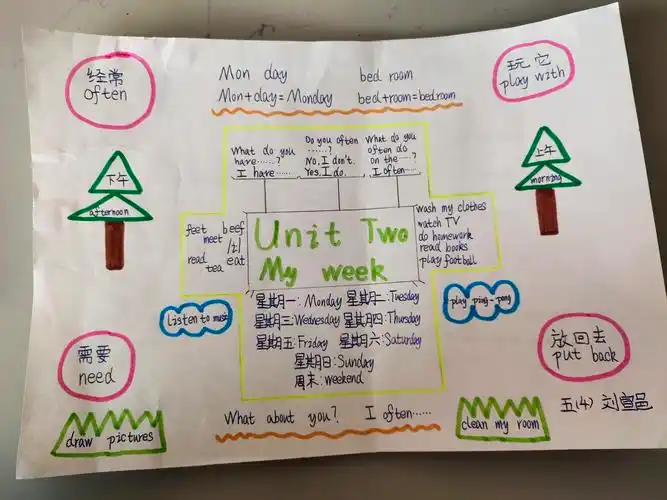 经常
often
Mon day
bed room
Mon+day=Monday
bed+room=bedroom
玩它
play with
下午
afternoon
上午
morning
What do you
have……?
I have……
Do you often
……?
No, I don't.
Yes, I do.
What do you
often do
on the…?
I often……
feet
beef
meet
/i:/
read
eat
tea
Unit Two
My week
wash my clothes
watch TV
do homework
read books
play football
listen to music
play ping-pong
星期一:Monday 星期二:Tuesday
星期三:Wednesday 星期四:Thursday
星期五:Friday 星期六:Saturday
星期日:Sunday
周末:weekend
需要
need
放回去
put back
draw pictures
What about you? I often……
clean my room
五(4)